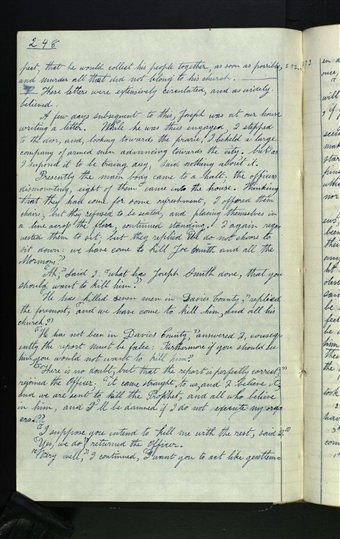 248
fest, that he would collect his people together, as soon as possible,
and murder all that did not belong to his church.
These letters were extensively circulated, and as widely
believed.
A few days subsequent to this, Joseph was at our house
writing a letter. While he was thus engaged, I stepped
to the door, and, looking towards the prairie, I beheld a large
company of armed men advancing towards the city, but as
I supposed it to be training day, said nothing about it.
Presently the main body came to a halt, the officers
dismounting, eight of them came into the house. Thinking
that they had come for some refreshment, I offered them
chairs, but they refused to be seated, and placing themselves in
a line across the floor, continued standing. I again requ-
ested them to sit, but they replied "We do not choose to
sit down: we have come to kill Joe Smith and all the
Mormons."
"Ah," said I, "what has Joseph Smith done, that you
should want to kill him?"
"He has killed seven men in Davies County," replied
the foremost, and we have come to kill him, and all his
church."
"He has not been in Davies County," answered I, conseq-
ently the report must be false: Furthermore if you should see
him you would not want to kill him."
"There is no doubt, but that the report is perfectly correct,"
rejoined the Officer, "it came straight to us, and I believe it,
and we are sent to kill the Prophet, and all who believe
in him, and I'll be damned if I do not execute my ord-
ers."
"I suppose you intend to kill me with the rest, said I."
"Yes, we do," returned the Officer.
"Very well," I continued, "I want you to act like gentlem-